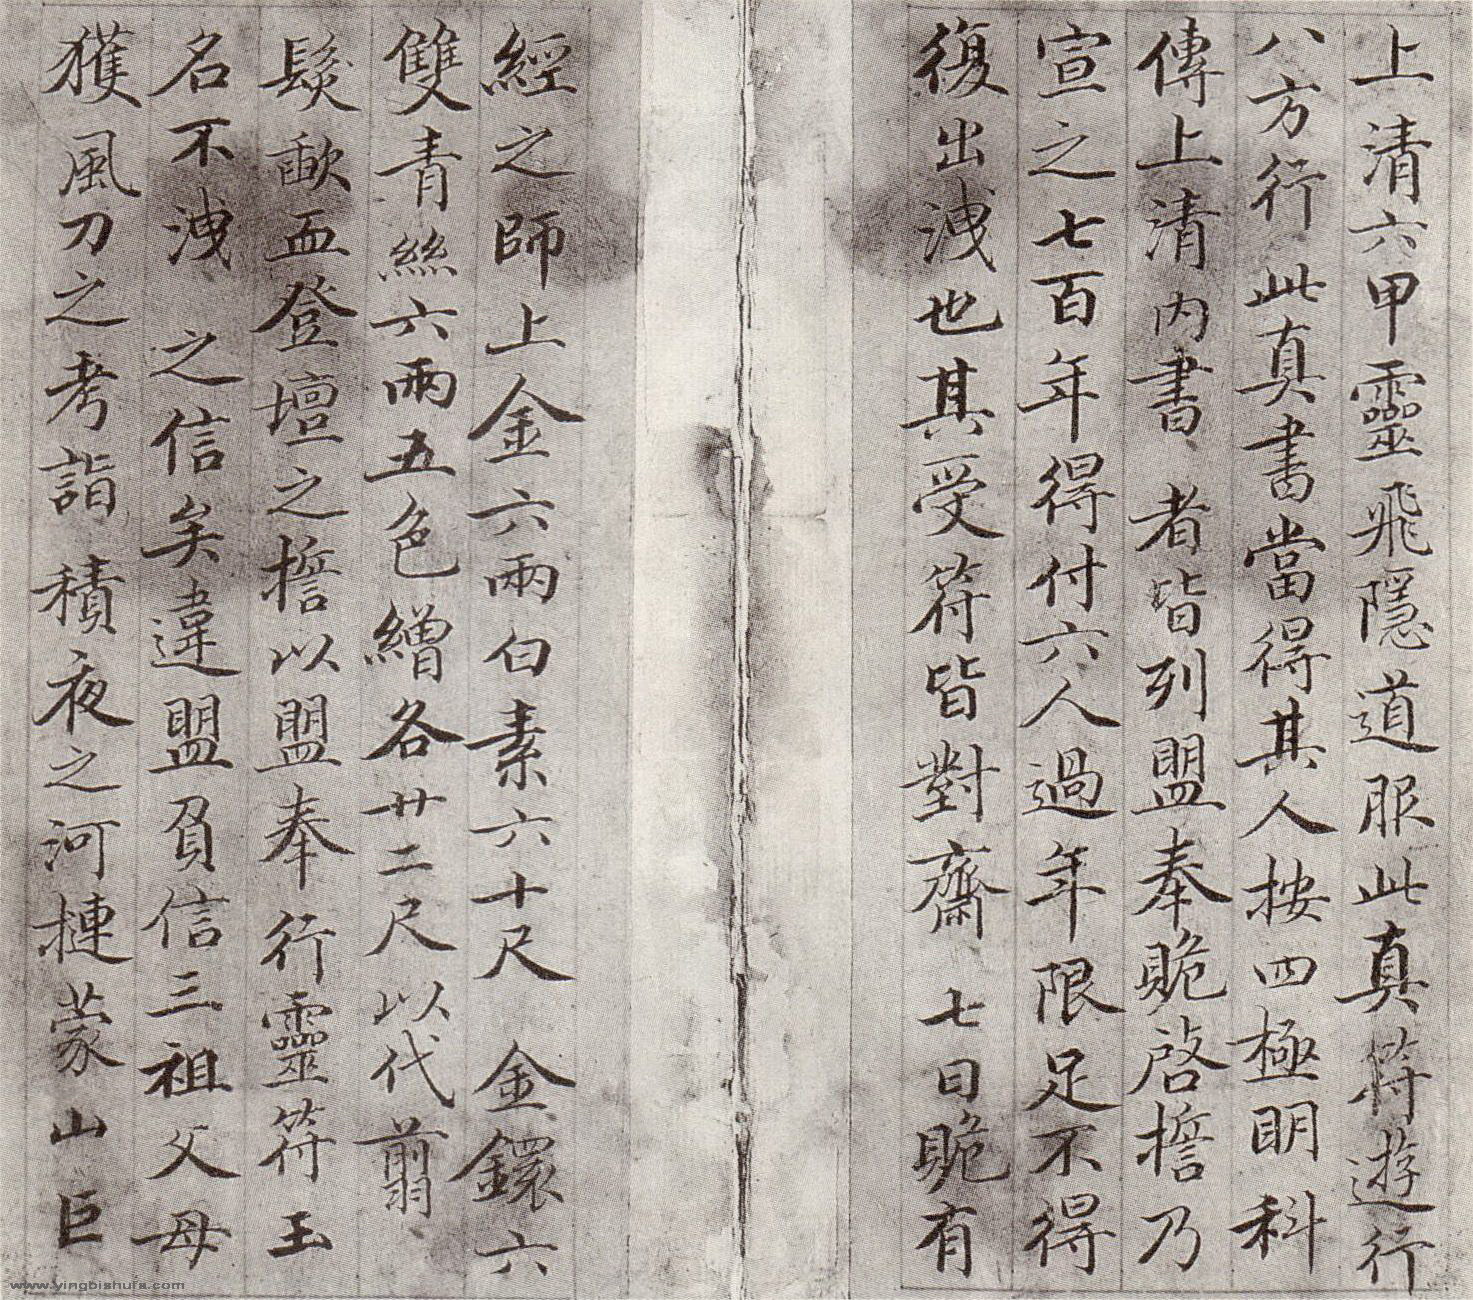 上清六甲靈飛隱道服此真符遊行
八方行此真書當得其人按四極明科
傳上清內書者皆列盟奉跪啓擔乃
宣之七百年得付六人過年限足不得
復出洩也其受符皆對齋七日跪有
經之師上金六兩白素六十尺金鐶六
雙青絲六兩五色繒各廿二尺以代翦
髮歃血登壇之擔以盟奉行靈符玉
名不洩之信矣違盟負信三祖父母
獲風刀之考詣積夜之河槤蒙山巨
www.yingbishufa.com